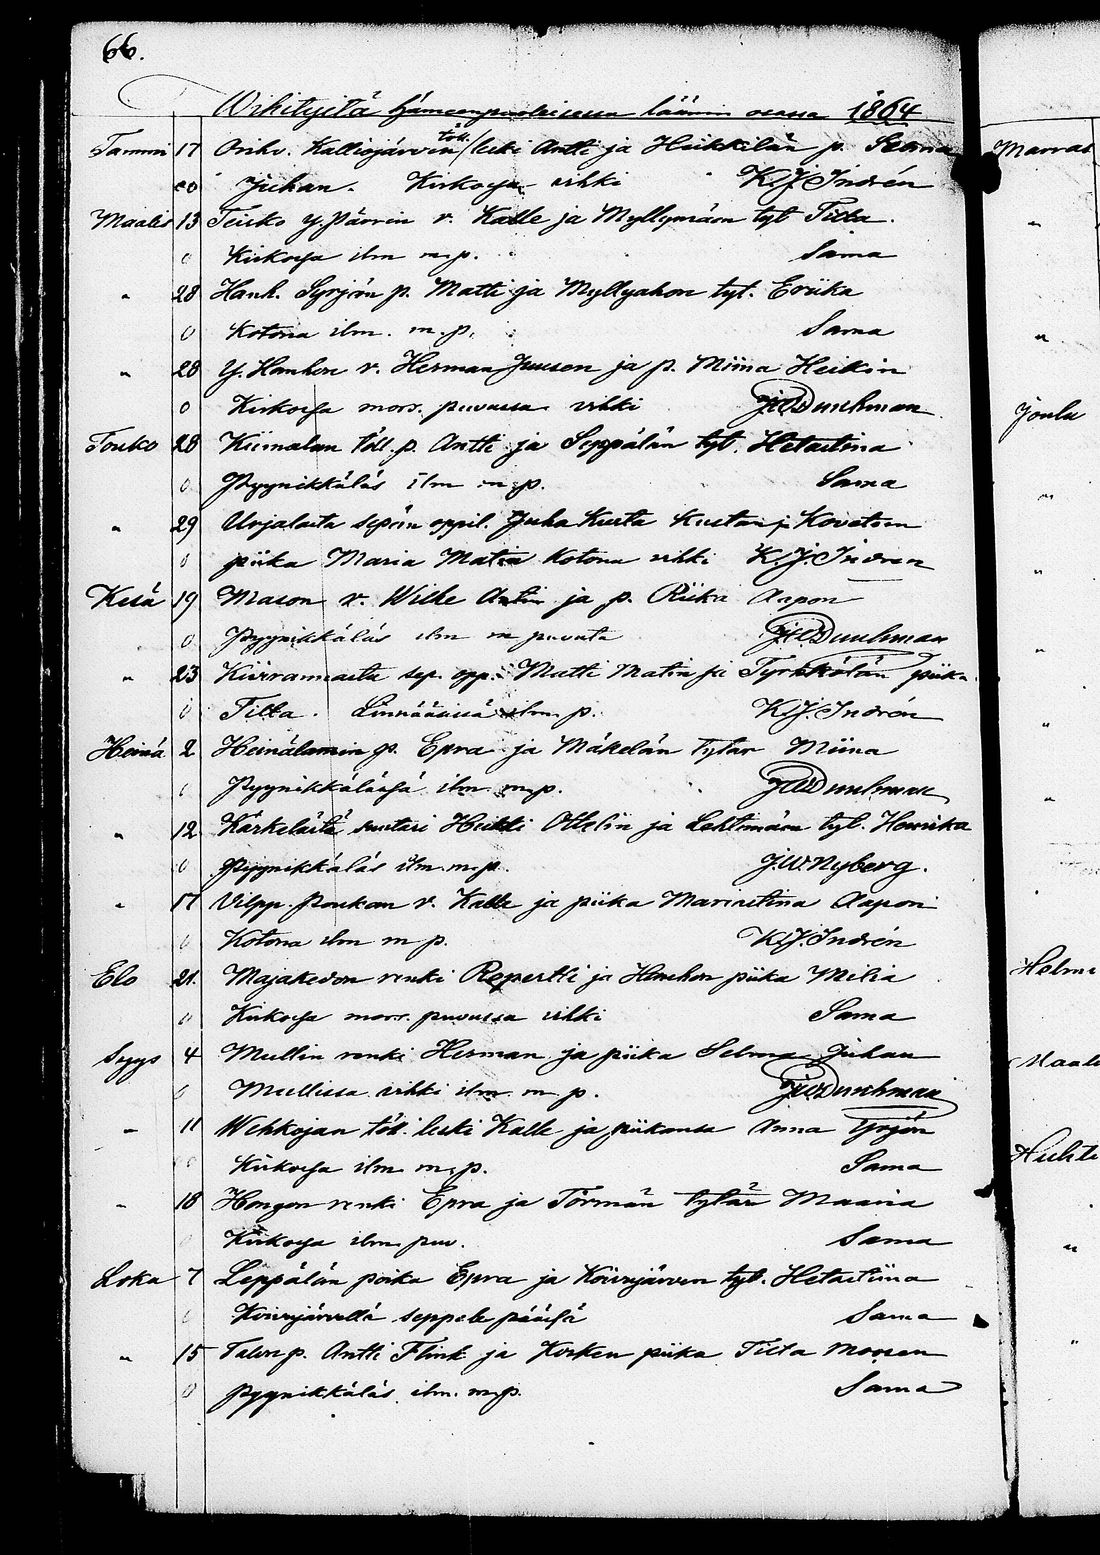 66.
Wihityitä Hämeenpuoleisessa läänin osassa 1864
Tammi 17 Orihv. Kalliojärvin töll. leski Antti ja Heikkilän p. Selma
Juhan. Kirkosa vihki K.J. Indrén
Maalis 13 Teisko Y. Pärrin r. Kalle ja Myllymäen tyt Tilta.
0 Kirkosa ilm m.p. Sama
" 28 Hanh. Syrjän p. Matti ja Myllyahon tyt. Eriika
0 Kotona ilm. m.p. Sama
" 28 Y. Hanhon r. Herman Juusen ja p. Miina Heikin
0 Kirkosa mors. puvussa vihki J.W. Duuhman
Touko 28 Kiimalan töll. p. Antti ja Seppälän tyt. Hetastina
0 Pyynikkäläs ilm m.p. Sama
" 29 Urjalasta sepän oppil. Juha Kusta Kustan ja Kovetsen
0 piika Maria Matin Kotona vihki K.J. Indren
Kesä 19 Mason r. Wilhe Antin ja p. Riika Aapon
0 Pyynikkäläs ilm m puvuta J.W. Duuhman
" 23 Matti Matin ja Tyrkkölän piika
0 Tilta. ilm. p. K.J. Indrén
Heinä 2 Heinälamin p. Epra ja Mäkelän tytär Miina
Pyynikkäläsä ilm. m.p. J.W. Duuhman
" 12 Kärkelästä suutari Heikki Ottelin ja Lehtimäen tyt. Henrika
0 Pyynikkäläs ilm. m.p. J.W. Nyberg.
" 17 Vilpp. Poukan r. Kalle ja piika Mariastina Aapon
0 Kotona ilm m p. K.J. Indrén
Elo 21. Majakedon renki Ropertti ja Hanhon piika Milia
0 Kirkosa mors. puvussa vihki Sama
Syys 4 Mullin renki Herman ja piika Selma Juhan
0 Mullissa vihki ilm. m p. J.W. Duuhman
" 11 Wehkojan töll. leski Kalle ja piikansa Anna Yrjön
Kirkosa ilm m.p. Sama
" 18 Hongon renki Epra ja Törmän tytär Maaria
Kirkosa ilm. puv. Sama
Loka 7 Leppälän poika Epra ja Koivujärven tyt. Hetastiina
Koivujärvellä seppele pääsä Sama
" 15 Talon p. Antti Flink ja Kosken piika Tilta Moosen
0 Pyynikkäläs ilm. m.p. Sama
Marras
"
"
Joulu
"
"
"
"
"
Helmi
Maalis
Huhti
"
"